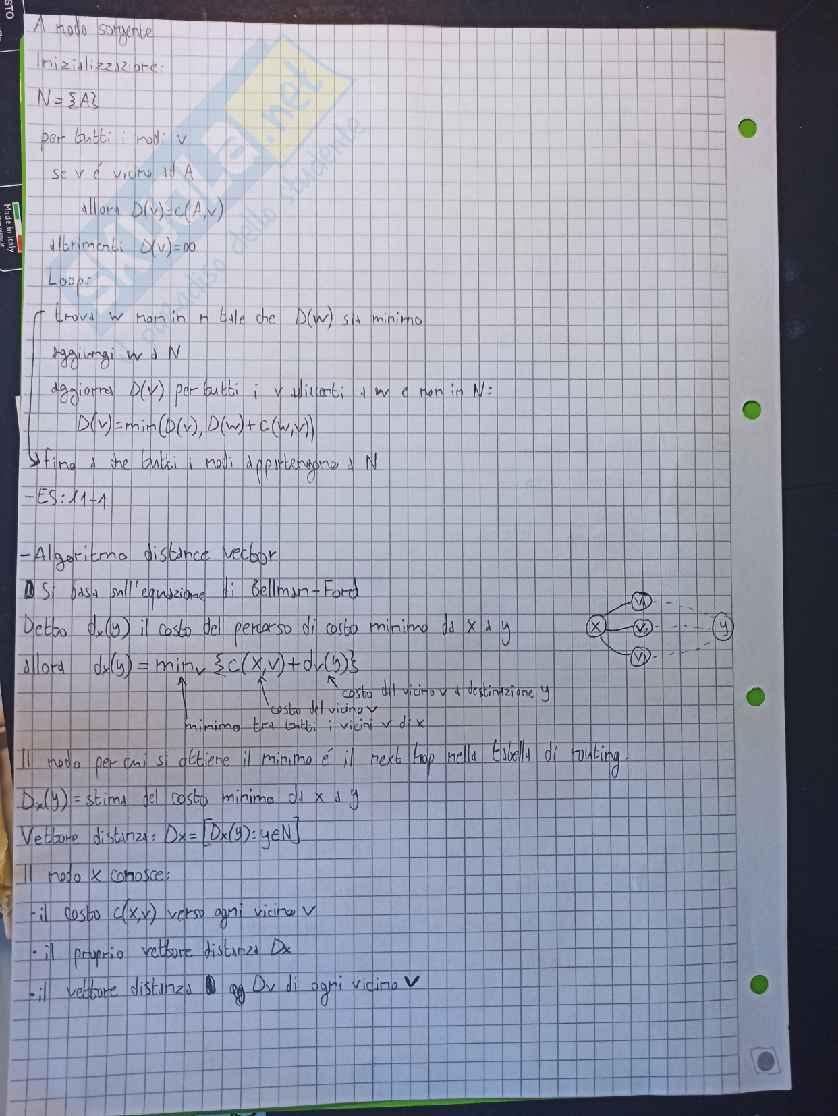 A nodo sorgente
Inizializzazione:
N={A}
per tutti i nodi v
se v è vicino ad A
allora D(v)=c(A,v)
altrimenti D(v)=∞
Loop:
trova w non in n tale che D(w) sia minimo
aggiungi w a N
aggiorna D(v) per tutti i v adiacenti a w e non in N:
D(v)=min(D(v), D(w)+c(w,v))
fino a che tutti i nodi appartengono a N
-ES: 11-1
-Algoritmo distance vector
Si basa sull'equazione di Bellman-Ford
Detto dx(y) il costo del percorso di costo minimo da x a y
allora dx(y)=minv {c(x,v)+dv(y)}
costo del vicino v a destinazione y
costo del vicino v
minimo tra tutti i vicini v di x
x v1 v2 v3 y
Il nodo per cui si ottiene il minimo é il next hop nella tabella di routing.
Dx(y)=stima del costo minimo da x a y
Vettore distanza: Dx=[Dx(y): y∈N]
Il nodo x conosce:
-il costo c(x,v) verso ogni vicino v
-il proprio vettore distanza Dx
-il vettore distanza Dv di ogni vicino v
SKUOLA.net
il paradiso dello studente
Made in Italy